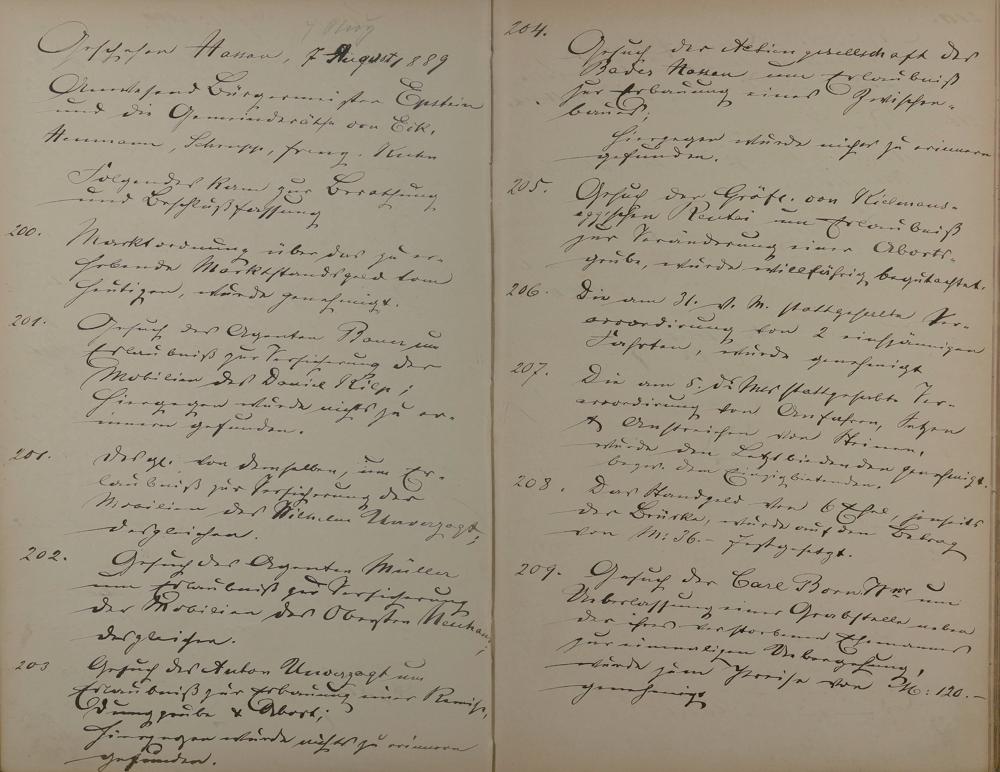 7 Aug
Geschehen Nassau, 7 August, 1889
Anwesend Bürgermeister Epstein
und die Gemeinderäthe von Eck,
Heumann, Schrupp, Kuhn
Folgendes kam zur Berathung
und Beschlußfassung
200. Marktordnung über das zu er-
hebende Marktstandsgeld vom
heutigen, wurde genehmigt.
201. Gesuch des Agenten Bauer um
Erlaubniß zur Versicherung der
Mobilien des Daniel Kilp;
hiergegen wurde nichts zu er-
innern gefunden.
201. desgl. von demselben, um Er-
laubniß zur Versicherung der
Mobilien des Wilhelm Unverzagt,
desgleichen.
202. Gesuch des Agenten Müller
um Erlaubniß zur Versicherung
der Mobilien des Obersten
desgleichen.
203 Gesuch des Anton Unverzagt um
Erlaubniß zur Erbauung einer Remise,
Dunggrube & Abort;
hiergegen wurde nichts zu erinnern
gefunden.
204. Gesuch der Actiengesellschaft des
Bades Nassau um Erlaubniß
zur Erbauung eines Zwischen-
baues;
hiergegen wurde nichts zu erinnern
gefunden.
205. Gesuch der Gräfl. von Kielmans-
egg'schen Rentei um Erlaubniß
zur Veränderung einer Aborts-
grube, wurde willfährig begutachtet.
206. Die am 31. v. M. stattgehabte Ver-
accordirung von 2 einspännigen
Fahrten, wurde genehmigt
207. Die am 5. ds Mts stattgehabte Ver-
accordirung von Anfahren, Setzen
& Anstreichen von Steinen,
wurde den Letztbietenden genehmigt.
bezw. den Einzigbietenden.
208. Das Standgeld von 6 jenseits
der Brücke, wurde auf den Betrag
von M: 36.- festgesetzt.
209. Gesuch der Carl Born Wwe um
Ueberlassung einer Grabstelle neben
der ihres verstorbenen Ehemannes
zur einmaligen
wurde zum Preise von M: 120.-
genehmigt